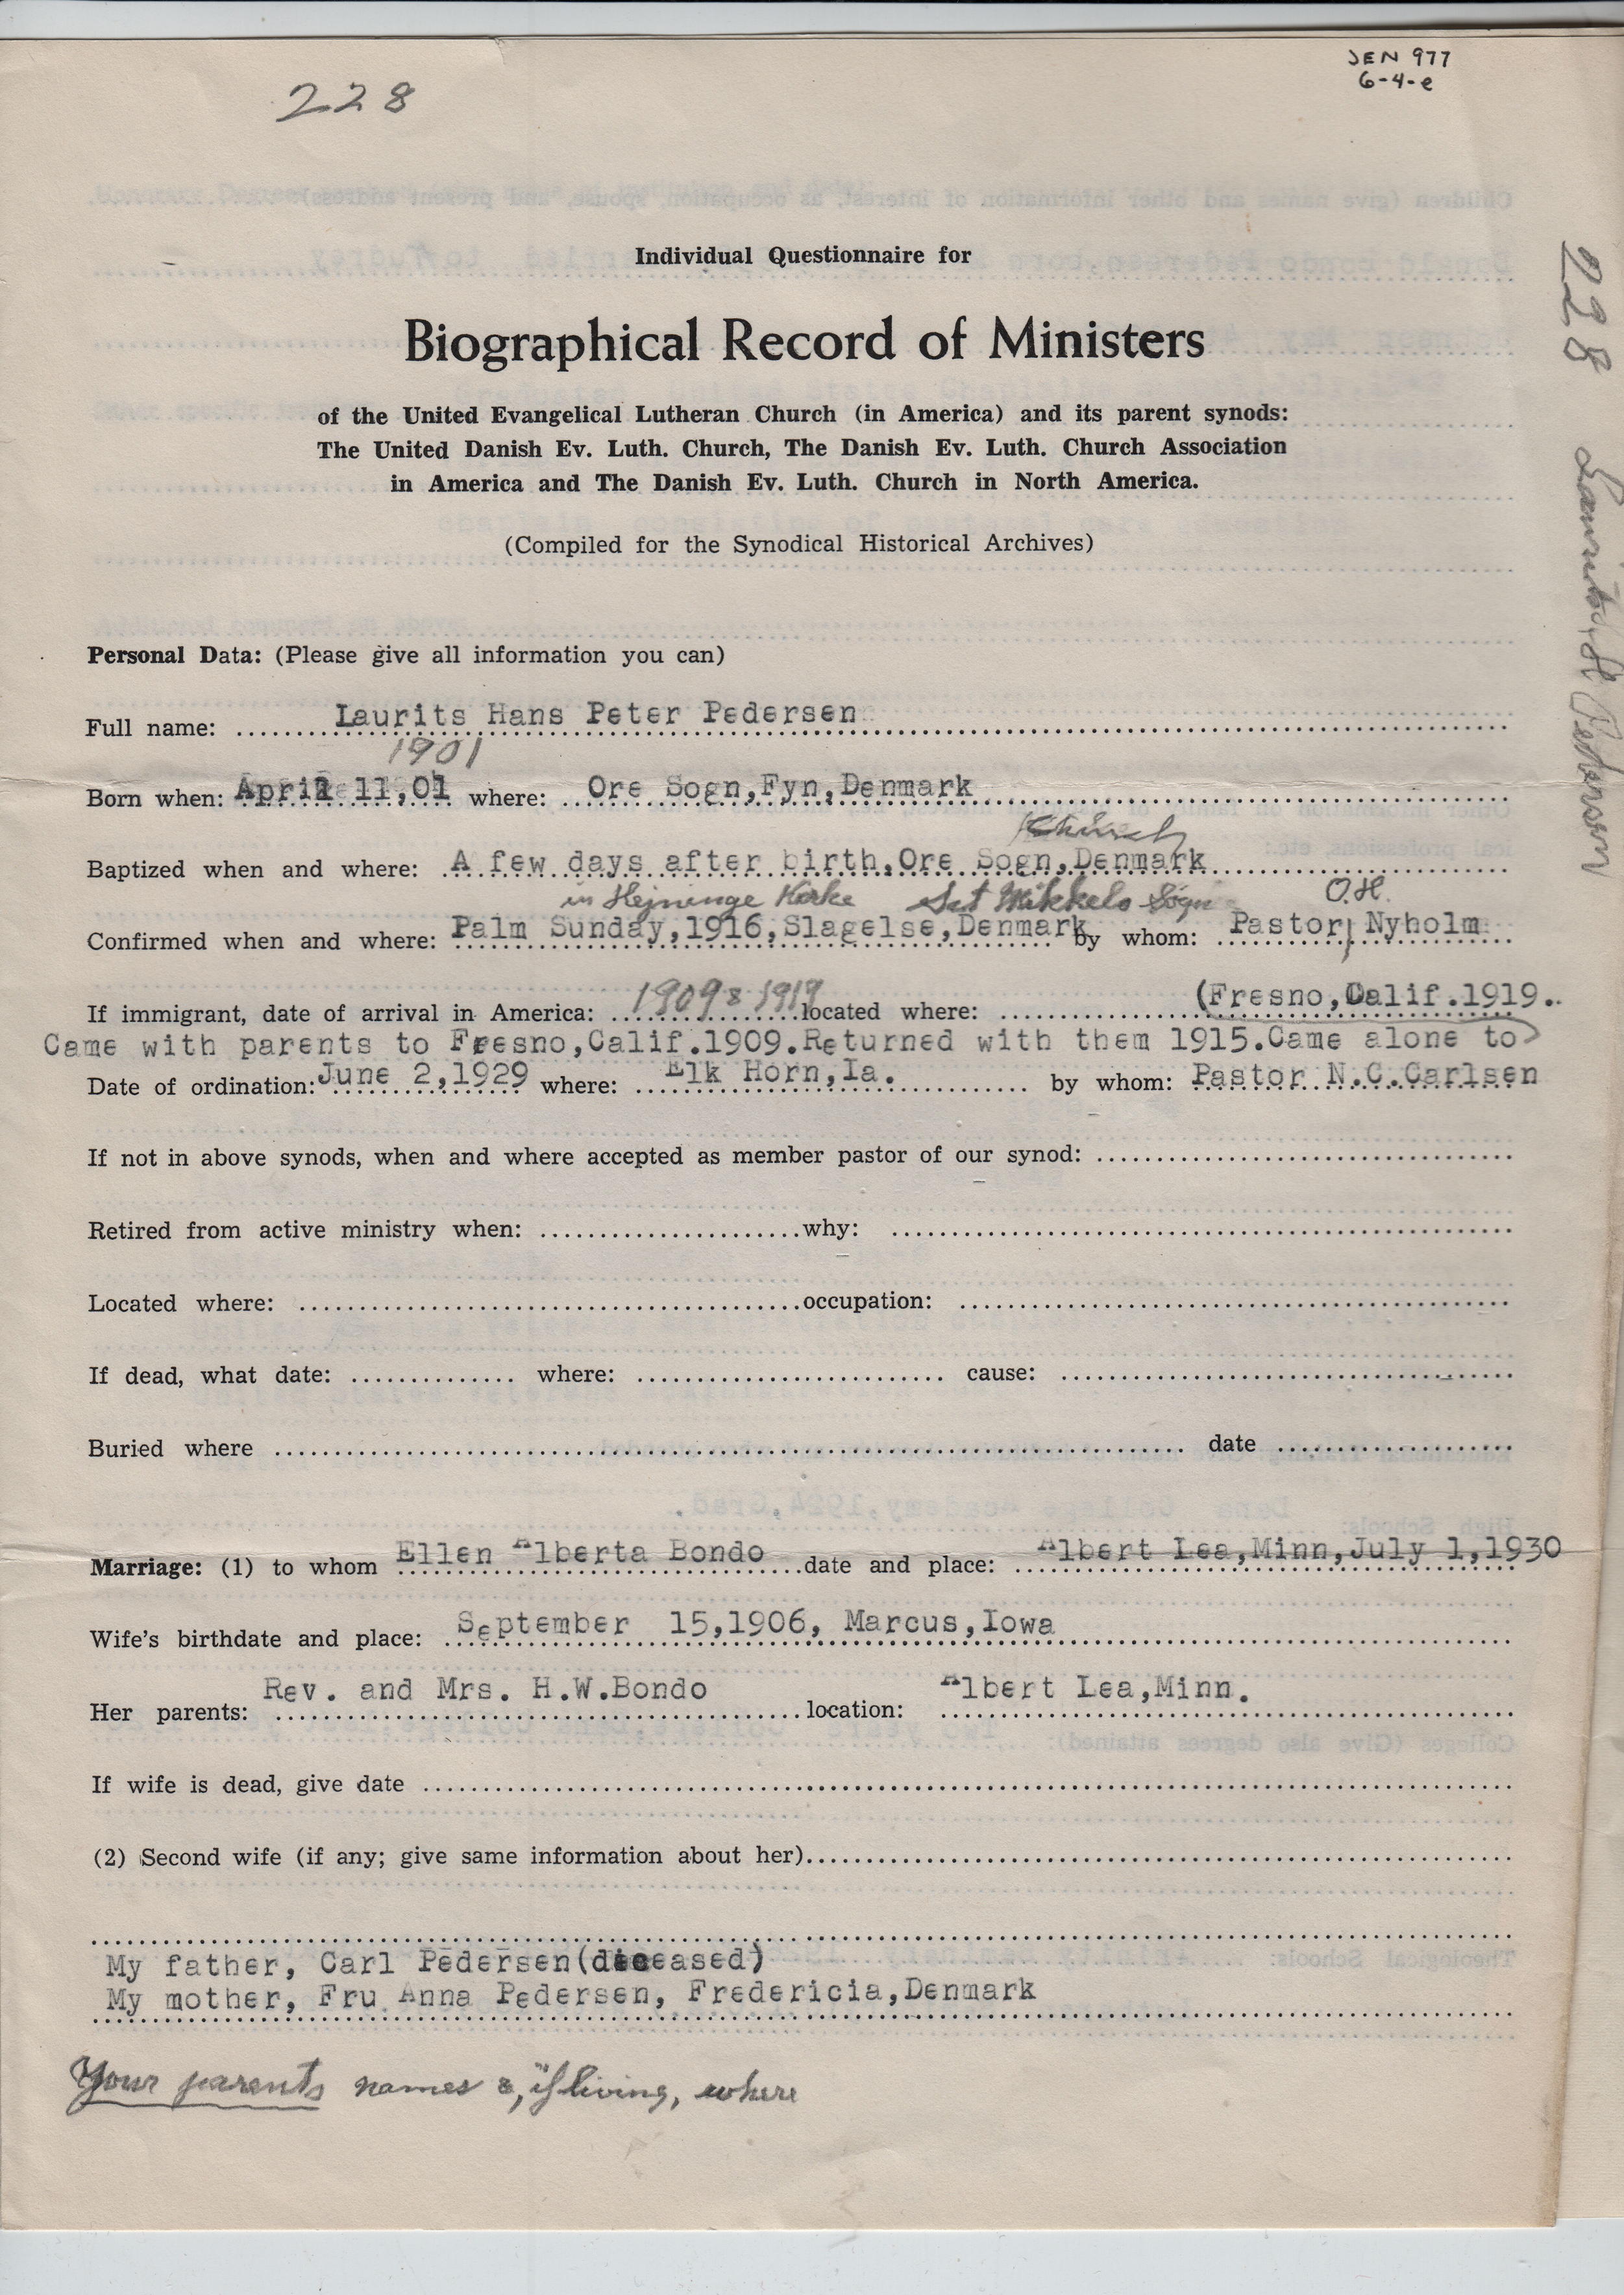 JEN 977
6-4-e
228
Individual Questionnaire for
Biographical Record of Ministers
of the United Evangelical Lutheran Church (in America) and its parent synods:
The United Danish Ev. Luth. Church, The Danish Ev. Luth. Church Association
in America and The Danish Ev. Luth. Church in North America.
(Compiled for the Synodical Historical Archives)
228 Laurits H Pedersen
Personal Data: (Please give all information you can)
Full name: Laurits Hans Peter Pedersen
1901
Born when: April 11,01 where: Ore Sogn,Fyn,Denmark
Church
Baptized when and where: A few days after birth,Ore Sogn,Denmark
in Hejninge Kirke Sct Mikkels Sogn O.H.
Confirmed when and where: Palm Sunday,1916,Slagelse,Denmark by whom: Pastor Nyholm
If immigrant, date of arrival in America: 1909 & 1919 located where: (Fresno,Calif.1919.
Came with parents to Fresno,Calif.1909.Returned with them 1915.Came alone to
Date of ordination: June 2,1929 where: Elk Horn,Ia. by whom: Pastor N.C.Carlsen
If not in above synods, when and where accepted as member pastor of our synod:
Retired from active ministry when: why:
Located where: occupation:
If dead, what date: where: cause:
Buried where date
Marriage: (1) to whom Ellen Alberta Bondo date and place: Albert Lea,Minn,July 1,1930
Wife's birthdate and place: September 15,1906, Marcus,Iowa
Her parents: Rev. and Mrs. H.W.Bondo location: Albert Lea,Minn.
If wife is dead, give date
(2) Second wife (if any; give same information about her)
My father, Carl Pedersen(deceased)
My mother, Fru Anna Pedersen, Fredericia,Denmark
Your parents names &, if living, where